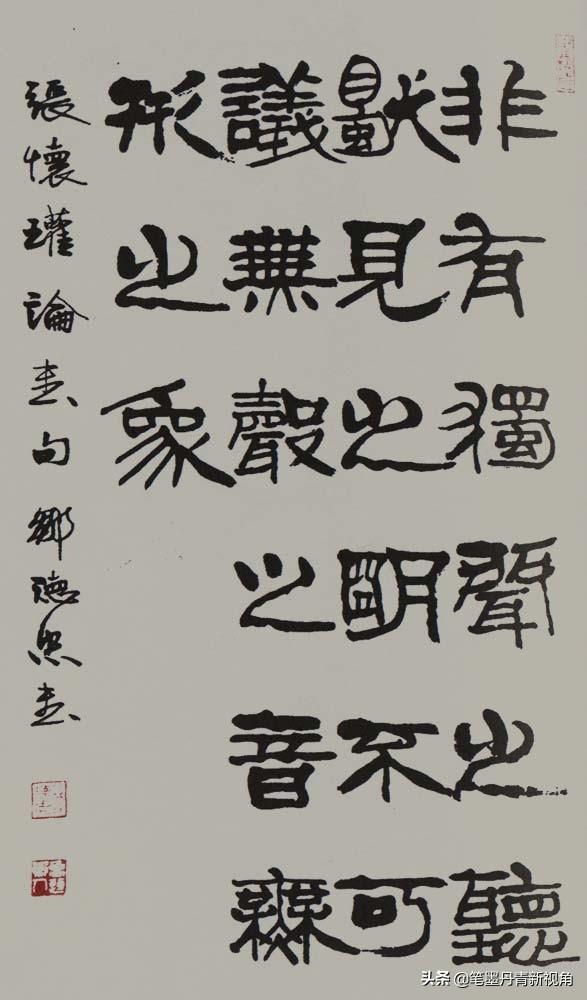 非有獨聞之聽
獨見之明不可
議無聲之音無
形之象
張懷瓘論書句鄒德忠書
头条 @笔墨丹青新视角